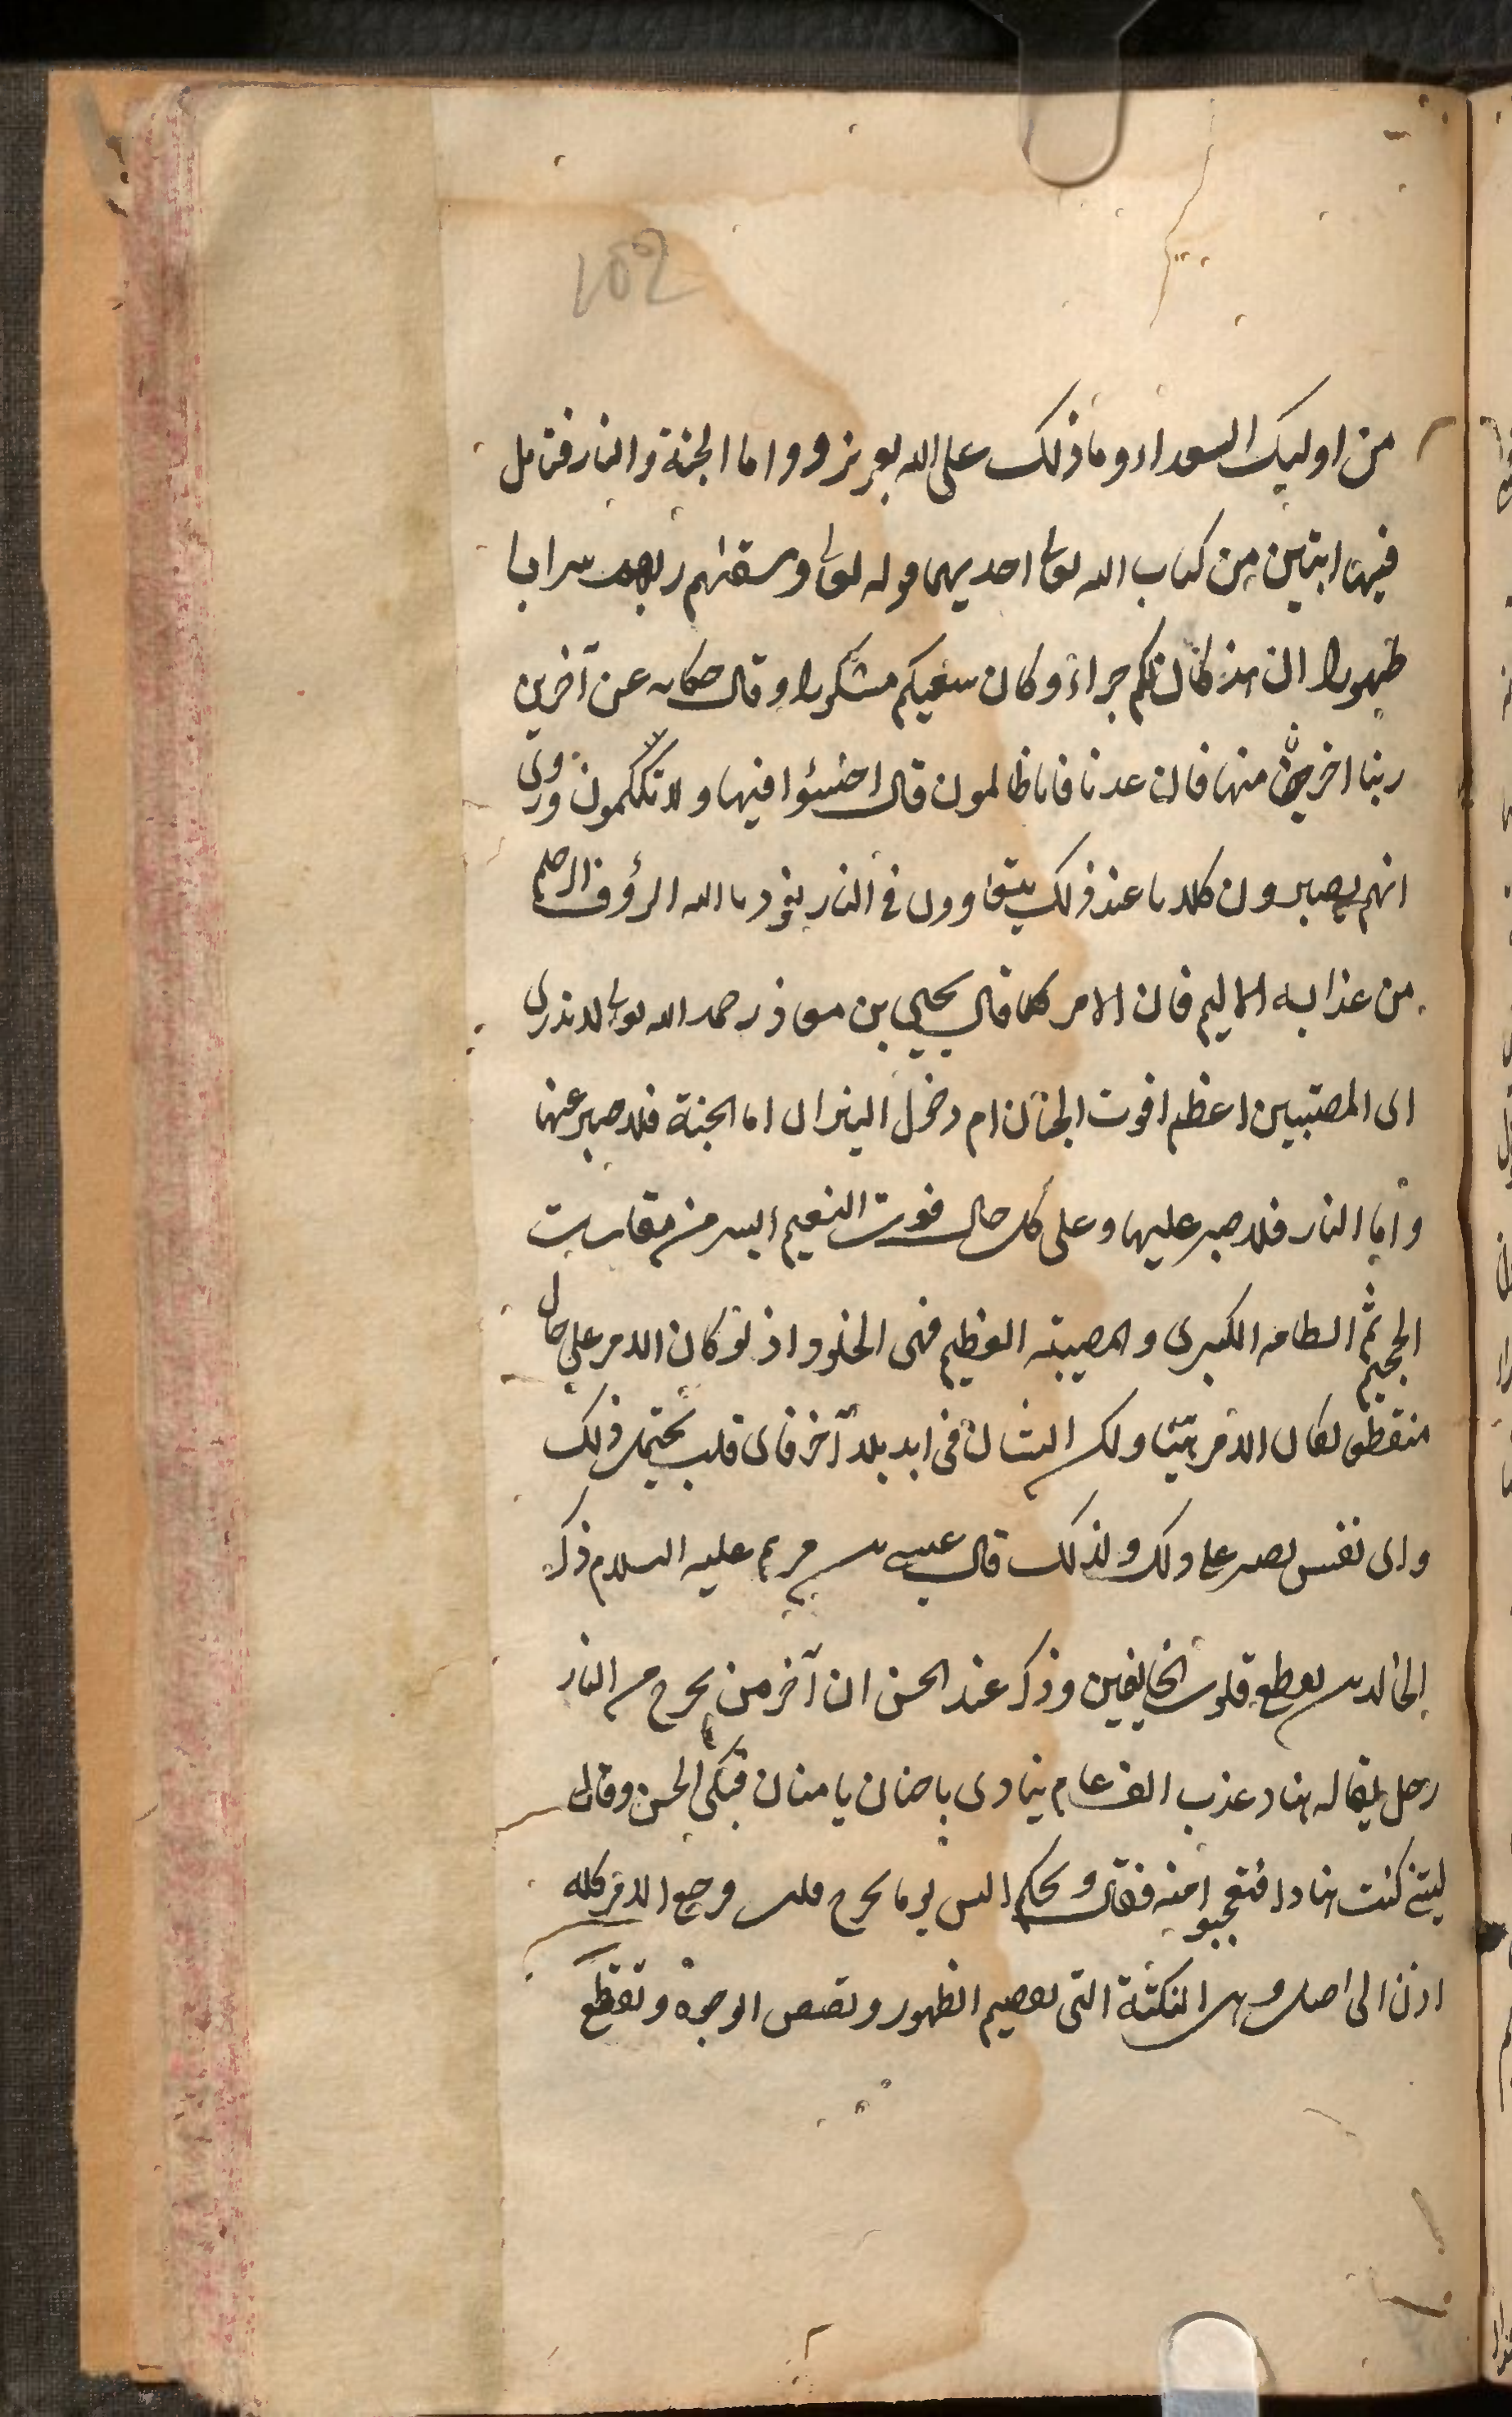 102
من اوليك السعداء وما ذلك على الله بعزيز و واما الجنة والنار فتامل
فيها ايتين من كتاب الله تعالى احديهما قوله تعالى وسقاهم ربهم شرابا
طهورا ان هذا كان لكم جزاء وكان سعيكم مشكورا وقال حكايه عن آخرين
ربنا اخرجنا منها فان عدنا فانا ظالمون قال اخسئوا فيها ولا تكلمون وروى
انهم يصيرون كلابا عند ذلك يتعاوون في النار نعوذ بالله الرؤف الرحيم
من عذابه الاليم فان الامر كما قال يحيى بن معاذ رحمه الله تعالى لا ندرى
اى المصتبيين اعظم افوت الجنان ام دخول النيران اما الجنة فلا صبر عنها
واما النار فلا صبر عليها وعلى كل حال فوت النعيم ايسر من مقاسات
الجحيم ثم الطامه الكبرى والمصيبته العظيم فهى الخلود اذ لو كان الامر على حال
منقطع لكان الامر هينا ولكن الشان فى ابد بلا آخر فاى قلب يحتمل ذلك
واى نفس تصبر على ذلك ولذلك قال عيسى بن مريم عليه السلام ذكر
الخالدين يقطع قلوب الخايفين وذكر عند الحسن ان آخر من يخرج من النار
رجل يقال له هناد عذب الف عام ينادى يا حنان يا منان فبكى الحسن وقال
ليتنى كنت هنادا فتعجبوا منه فقال ويحكم اليس يوما يخرج قلت فرجع الامر كله
اذن الى اصل وهى النكتة التى تقصم الظهور وتصفر الوجوه وتقطع